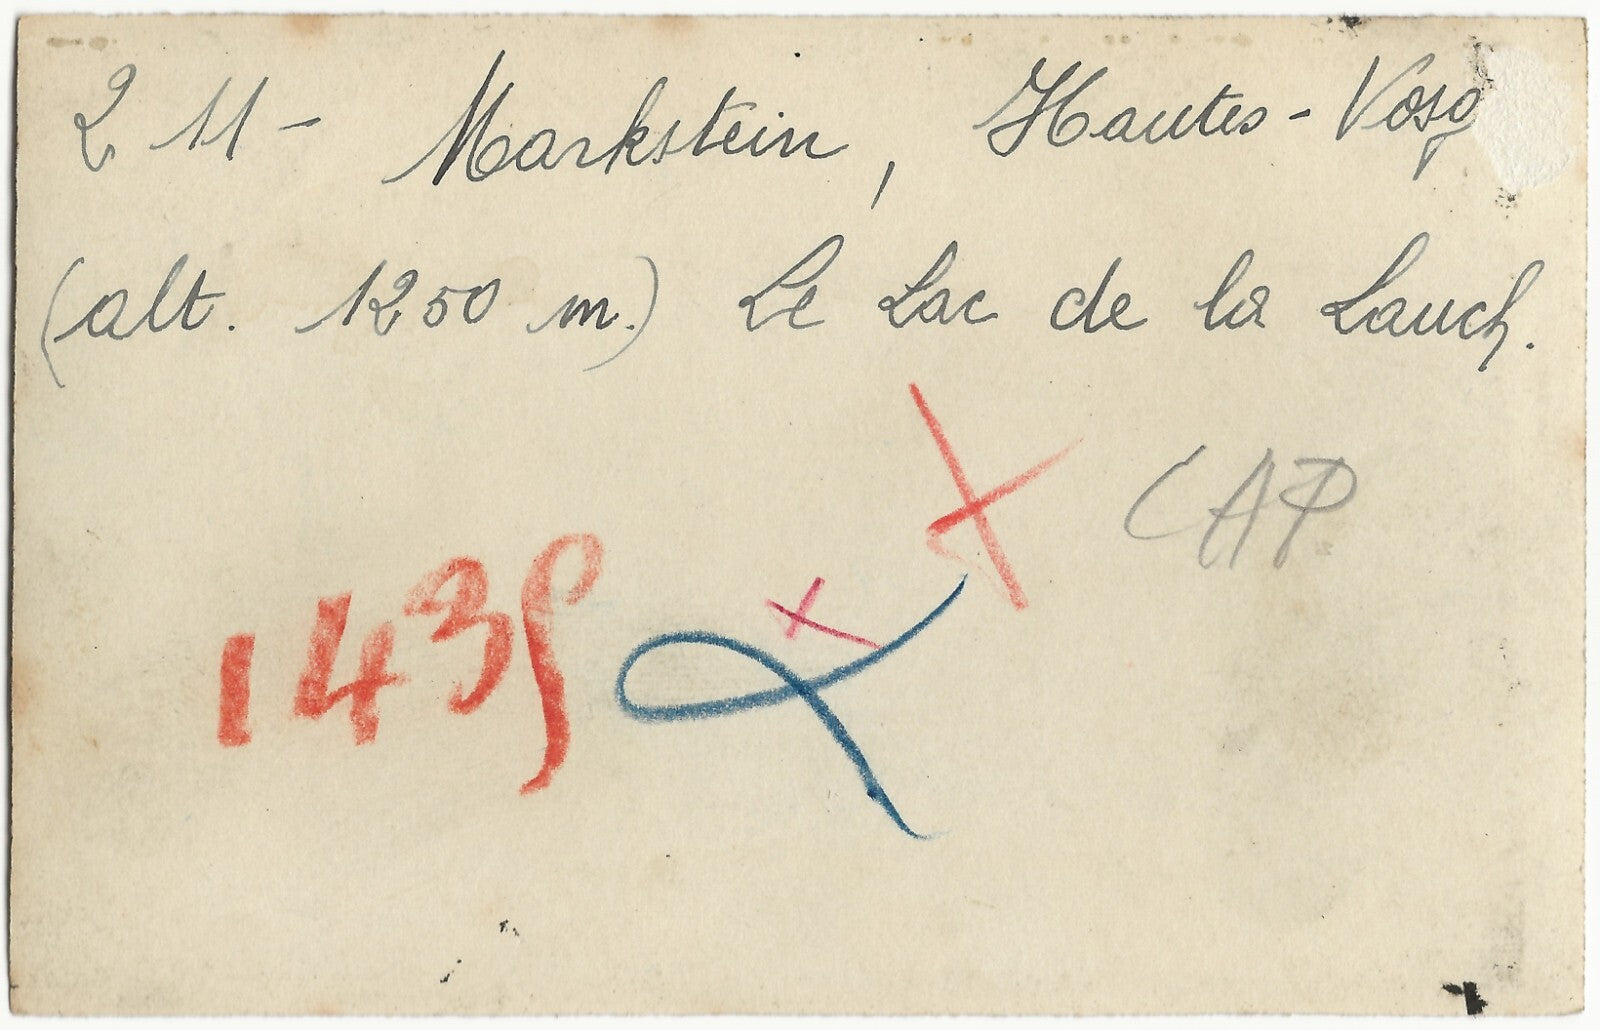 2 11 - Markstein, Hautes-Vosg
(alt. 1250 m.) Le Lac de la Lauch.
CAP
143